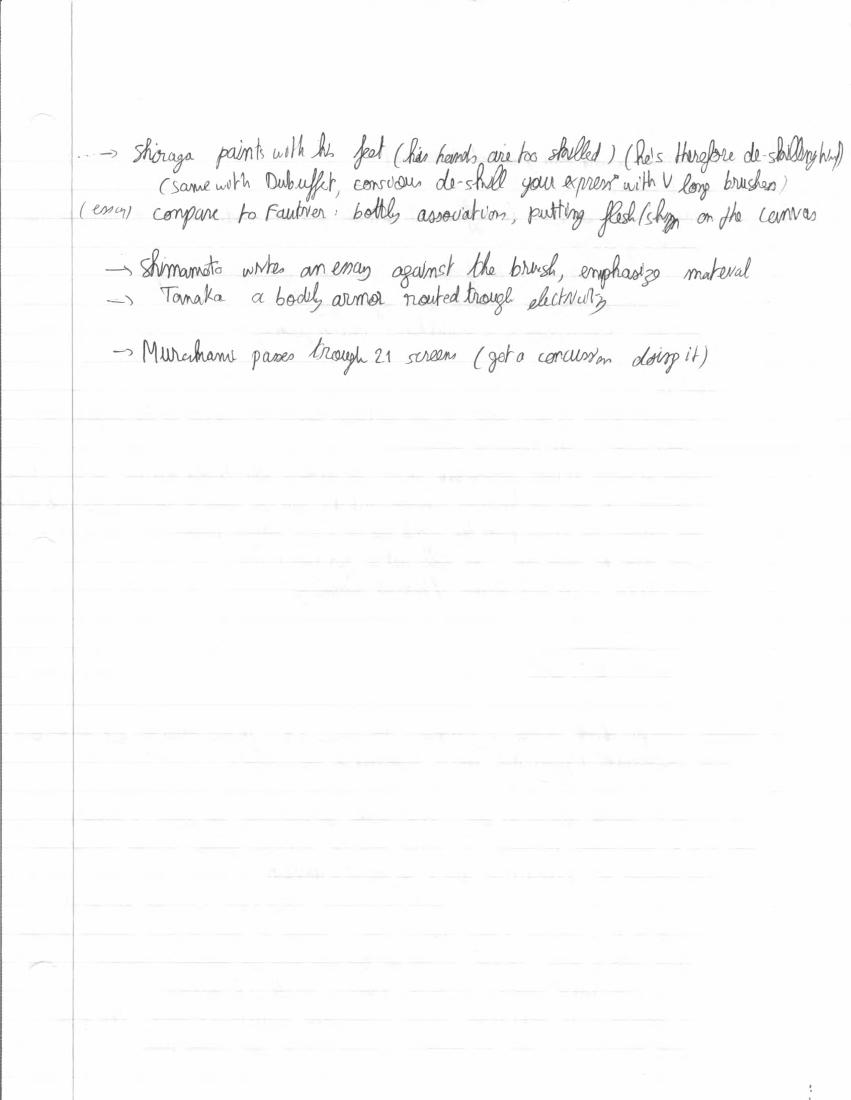 ...→ Shiraga paints with his feet (his hands are too skilled) (he's therefore de-skilling
(same with Dubuffet, conscious de-skill you express° with V long brushes)
(essay) compare to Fautrier: bodily association, putting flesh/ on the canvas
→ Shimamoto writes an essay against the brush, emphasize material
→ Tanaka a bodily armor routed trough electricity
→ Murakami passes trough 21 screens (get a concussion doing it)